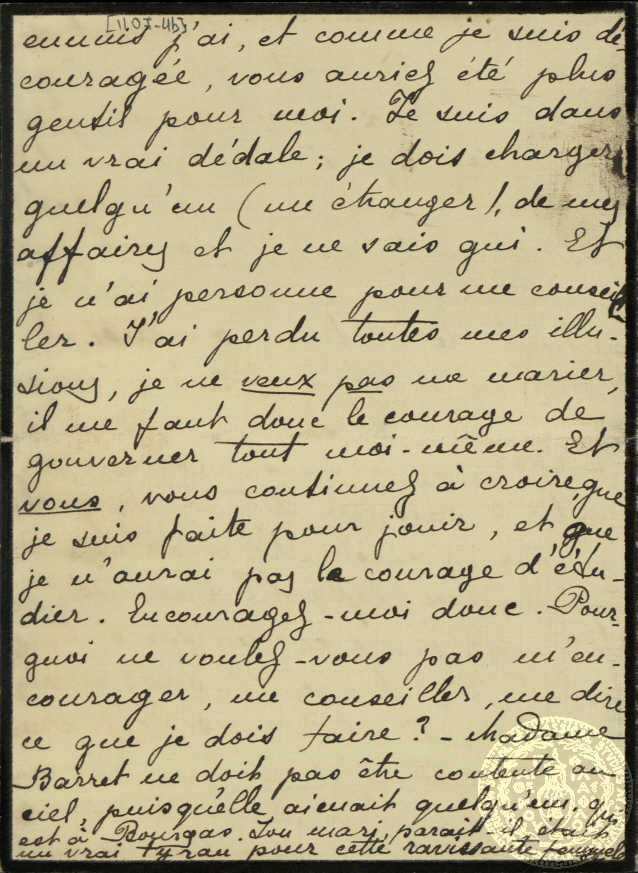 [4h-7011]
ennuis j'ai, et comme je suis dé-
couragée, vous auriez été plus
gentil pour moi. Je suis dans
un vrai dédale; je dois charger
quelqu'un (un étranger), de mes
affaires et je ne sais qui. Et
je n'ai personne pour me conseil-
ler. J'ai perdu toutes mes illu-
sions, je ne veux pas me marier,
il me faut donc le courage de
gouverner tout moi-même. Et
vous, vous continuez à croire, que
je suis faite pour jouir, et que
je n'aurai pas le courage d'étu-
dier. Encouragez-moi donc. Pour-
quoi ne voulez-vous pas m'en-
courager, me conseiller, me dire
ce que je dois faire? - Madame
Barret ne doit pas être contente au
ciel, puisqu'elle aimait quelqu'un, qui
est à Bourgas. Son mari, paraît-il, était
un vrai tyran pour cette ravissante femme